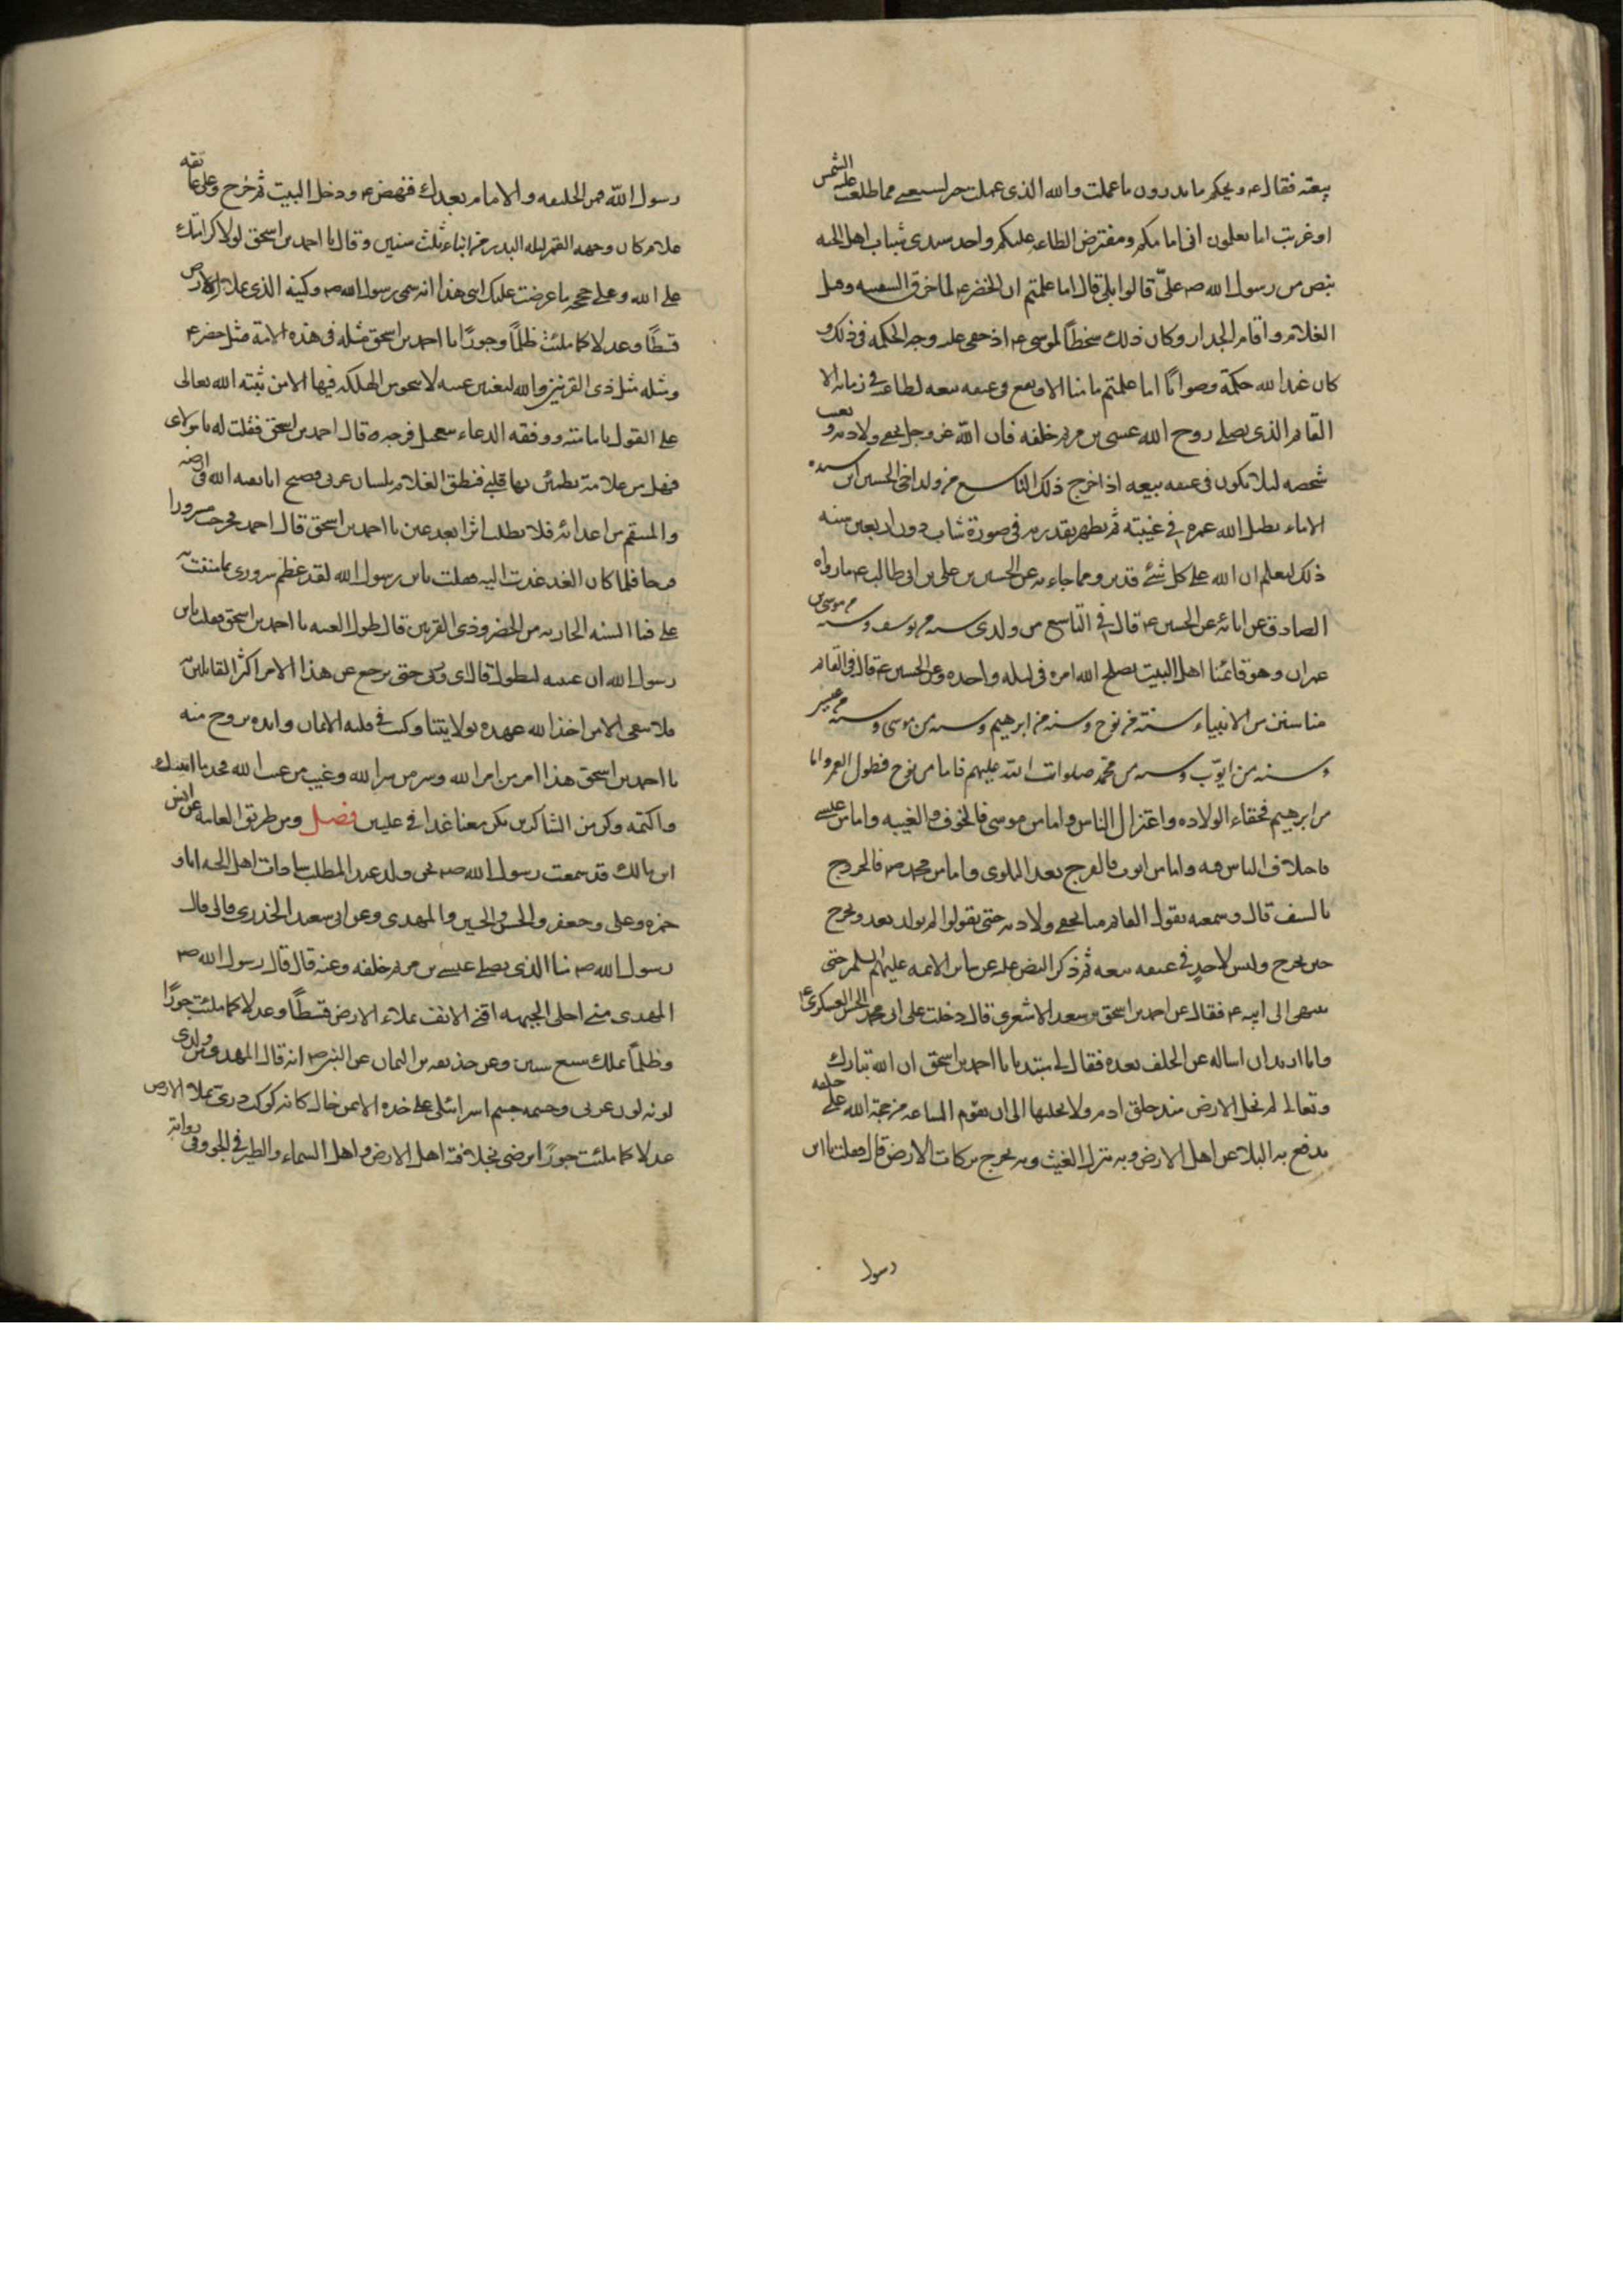 بيعته فقال ع ويحكم ما تدرون ما عملت والله الذى عملت خير لشيعتى مما طلعت عليه الشمس
او غربت اما تعلمون انى امامكم ومفترض الطاعه عليكم واحد سيدى شباب اهل الجنه
بنص من رسول الله صم علىّ قالوا بلى قال اما علمتم ان الخضر ع لما خرق السفينه وقتل
الغلام واقام الجدار وكان ذلك سخطًا لموسى ع اذ خفى عليه وجه الحكمه فى ذلك و
كان عند الله حكمة وصوابًا اما علمتم ما منا الا ويقع فى عنقه بيعه لطاغيه فى زمانه الا
القائم الذى يصلى روح الله عيسى بن مريم خلفه فان الله عز وجل يخفى ولادته ويغيب
شخصه ليلا يكون فى عنقه بيعه اذا خرج ذلك التاسع من ولد اخى الحسين ابن سيده
الاماء يطيل الله عمره فى غيبته ثم يظهره بقدرته فى صورة شاب دون اربعين سنه
ذلك ليعلم ان الله على كل شئ قدير ومما جاء به عن الحسين بن على بن ابى طالب ع ما رواه
الصادق عن ابائه عن الحسين ع قال فى التاسع من ولدى سنه من يوسف وسنه من موسى بن
عمران وهو قائمنا اهل البيت يصلح الله امره فى ليله واحده وعن الحسين ع قال فى القائم
منا سنن من الانبياء سنة من نوح وسنه من ابرهيم وسنه من موسى وسنه من عيسى
وسنه من ايوّب وسنه من محمّد صلوات الله عليهم فاما من نوح فطول العمر واما
من ابرهيم فخفاء الولاده واعتزال الناس واما من موسى فالخوف والغيبه واما من عيسى
فاختلاف الناس فيه واما من ايوب فالفرج بعد البلوى واما من محمد صم فالخروج
بالسيف قال وسمعته يقول القائم منا يخفى ولادته حتى يقولوا لم يولد بعد ويخرج
حين يخرج وليس لاحدٍ فى عنقه بيعه ثم ذكر النص عليه عن سائر الائمه عليهم السلم حتى
ينتهى الى ابيه ع فقال عن احمد بن اسحق بن سعد الاشعرى قال دخلت على ابى محمد الحسن العسكرى ع
وانا اريد ان اساله عن الخلف بعده فقال لى مبتديا يا احمد بن اسحق ان الله تبارك
وتعالى لم يخل الارض منذ خلق ادم ولا يخليها الى ان يقوم الساعه من حجة الله على خلقه
يدفع به البلاء عن اهل الارض وبه ينزل الغيث وبه يخرج بركات الارض قال فقلت يا ابن
رسول
رسول الله فمن الخليفه والامام بعدك فنهض ع ودخل البيت ثم خرج وعلى عاتقه
غلام كان وجهه القمر ليله البدر من ابناء ثلث سنين وقال يا احمد بن اسحق لولا كرامتك
على الله وعلى حججه ما عرضت عليك ابنى هذا انه سمى رسول الله صم وكنيه الذى يملاء الارض
قسطًا وعدلا كما ملئت ظلمًا وجورًا يا احمد بن اسحق مثله فى هذه الامة مثل خضر ع
ومثله مثل ذى القرنين والله ليغيبن غيبه لا ينجو من الهلكه فيها الا من ثبته الله تعالى
على القول بامامته ووفقه الدعاء بتعجيل فرجه قال احمد بن اسحق فقلت له يا مولاى
فهل من علامة يطمئن بها قلبى فنطق الغلام بلسان عربى فصيح انا بقيه الله فى ارضه
والمنتقم من اعدائه فلا تطلب اثرا بعد عين يا احمد بن اسحق قال احمد فخرجت مسرورا
فرحا فلما كان الغد غدت اليه فقلت يا بن رسول الله لقد عظم سرورى بما مننت به
على فما السنه الجاريه من الخضر وذى القرنين قال طول الغيبه يا احمد بن اسحق فقلت يا بن
رسول الله ان غيبه لتطول قال اى وربى حتى يرجع عن هذا الامر اكثر القائلين به
فلا يبقى الا من اخذ الله عهده بولايتنا وكتب فى قلبه الايمان وايده بروح منه
يا احمد بن اسحق هذا امر من امر الله وسر من سر الله وغيب من غيب الله فخذ ما اتيتك
واكتمه وكن من الشاكرين تكن معنا غدا فى عليين فصل ومن طريق العامه عن انس
ابن مالك قد سمعت رسول الله صم نحن ولد عبد المطلب سادات اهل الجنه انا و
حمزه وعلى وجعفر والحسن والحسين والمهدى وعن ابى سعيد الخدرى قال قال
رسول الله صم منا الذى يصلى عيسى بن مريم خلفه وعنه قال قال رسول الله صم
المهدى منى اجلى الجبهه اقنى الانف يملاء الارض قسطًا وعدلا كما ملئت جورًا
وظلمًا يملك سبع سنين وعن حذيفه بن اليمان عن النبى صم انه قال المهدى من ولدى
لونه لون عربى وجسمه جسم اسرائيلى على خده الايمن خال كانه كوكب درى يملاء الارض
عدلا كما ملئت جورًا يرضى بخلافته اهل الارض واهل السماء والطير فى الجو وفى روايته